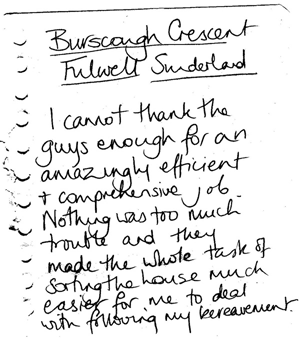 Burscough Crescent
Fulwell Sunderland
I cannot thank the
guys enough for an
amazingly efficient
+ comprehensive job.
Nothing was too much
trouble and they
made the whole task of
sorting the house much
easier for me to deal
with following my bereavement.